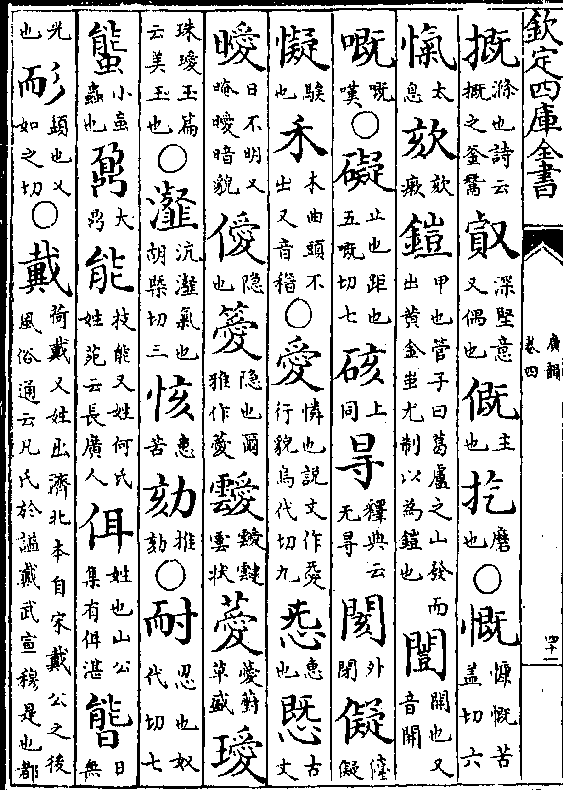 欽定四庫全書
廣韻
卷四
四十一
摡滌也詩云摡之釜鬵叡深堅意又偶也㑣主也扢磨也○慨慷慨苦蓋切六
愾太息欬欬瘷鎧甲也管子曰葛盧之山發而出黄金蚩尤制以為鎧也闓開也又音開
嘅嘅嘆○礙止也距也五嘅切七硋上同㝵釋典云无㝵閡外閉儗儓儗
懝騃也禾木曲頭不出又音稽○愛憐也說文作㤅行貌烏代切九㤅惠也㤅古文
曖日不明又晻曖暗貌僾隱也薆隱也爾雅作薆靉靉靆雲狀薆薆薱草盛璦
珠璦玉篇云美玉也○瀣沆瀣氣也胡槩切三㤥患苦劾推劾○耐忍也奴代切七
螚小蝱蟲也鼐大鼎能技能又姓何氏姓苑云長廣人佴姓也山公集有佴湛㫰日無
光也耏頭也又如之切○戴荷戴又姓出濟北本自宋戴公之後風俗通云凡氏於謚戴武宣穆是也都